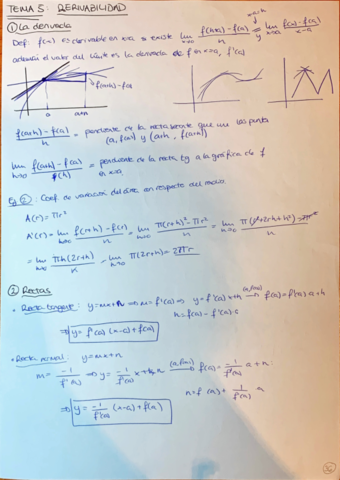 TEMA 5: DERIVABILIDAD
① La derivada
Def: f(x) es derivable en x=a si existe lim h→0 (f(a+h)-f(a))/h = lim x→a (f(x)-f(a))/(x-a) y
al valor del límite es la derivada de f en x=a, f'(a)
f(a+h)-f(a)
a a+h
(f(a+h)-f(a))/h = pendiente de la recta que une los puntos (a, f(a)) y (a+h, f(a+h))
lim h→0 (f(a+h)-f(a))/h = pendiente de la recta tg a la gráfica de f en x=a
Eg ②: Coef. de variación del área con respecto del radio
A(r) = πr²
A'(r) = lim h→0 (f(r+h)-f(r))/h = lim h→0 (π(r+h)²-πr²)/h = lim h→0 (π(r²+2rh+h²)-πr²)/h
= lim h→0 πh(2r+h)/h = lim h→0 π(2r+h) = 2πr
② Rectas
• Recta tangente: y=mx+n ⇒ m=f'(a) ⇒ y=f'(a)x+n (a,f(a))→ f(a)=f'(a)a+n
n=f(a)-f'(a)·a
⇒ y=f'(a)(x-a)+f(a)
• Recta normal: y=mx+n
m = -1/f'(a) ⇒ y = -1/f'(a) x+n (a,f(a))→ f(a) = -1/f'(a) a+n
n=f(a)+ 1/f'(a) a
⇒ y = -1/f'(a) (x-a)+f(a)